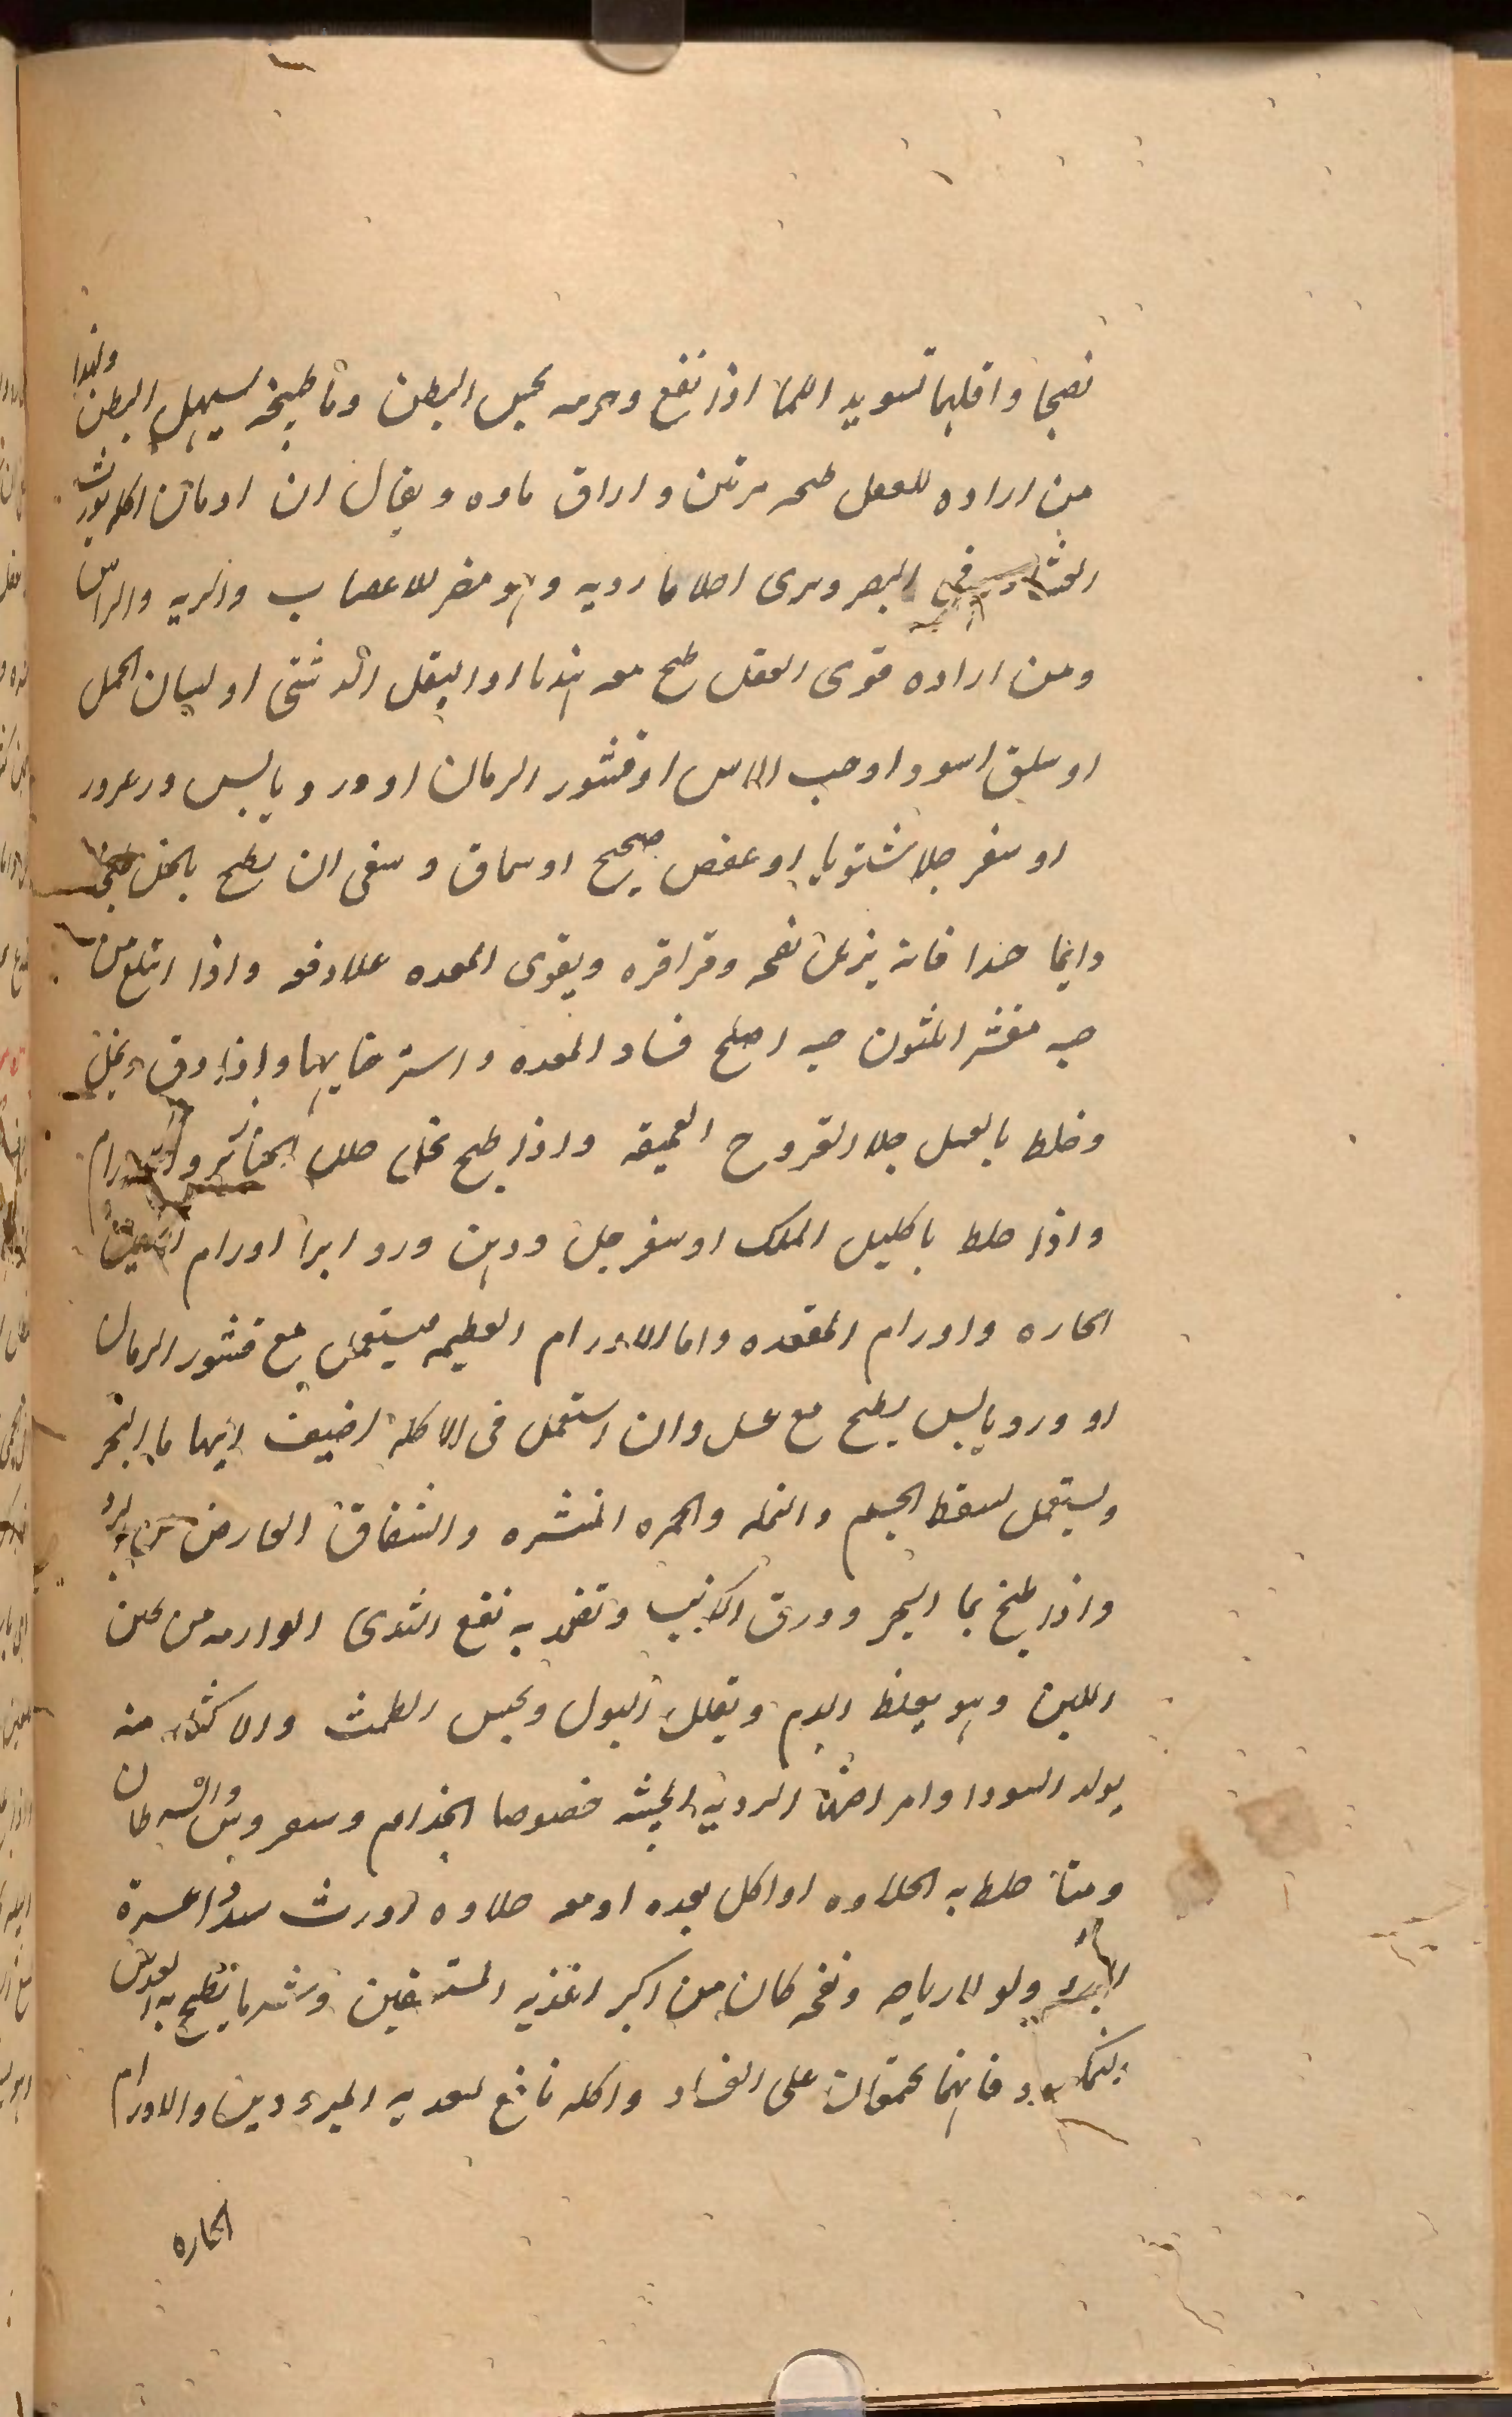 نضجا واقلهما تسويد الما اذا نقع وجرمه يحبس البطن وما طبيخه يسهل البطن ولهذا
من اراده للعقل طبخه مرتين واراق ماوه ويقال ان ادمان اكله يورث
العشا فى البصر ويرى احلاما رديه وهو مضر للاعصاب والريه والراس
ومن اراده قوى العقل طبخ معه هندبا او البقل الدشتى او لسان الحمل
او سلق اسود او حب الاس او قشور الرمان او ورد يابس وزعرور
او سفرجلا شتويا او عفص صحيح او سماق وينبغى ان يطبخ بالخل طبخا
دايما جدا فانه يزيل نفخه وقراقره ويقوى المعده علا دفعه واذا ابتلع من
حبه مقشر ثلثون حبه اصلح فساد المعده واسترخايها واذا دق ونخل
وخلط بالعسل جلا القروح العميقه واذا طبخ بخل حلل الخنازير والاورام
واذا خلط باكليل الملك او سفرجل ودهن ورد ابرا اورام العين
الحاره واورام المقعده واما الاورام العظيمه فيستعمل مع قشور الرمان
او ورد يابس يطبخ مع عسل وان استعمل فى الاكله اضيف اليها ما البحر
ويستعمل لنفط الجسم والنمله والحمره المنتشره والشقاق العارض من البرد
واذا طبخ بما البحر وورق الكرنب وتضمد به نفع الثدى الوارمه من تجبن
اللبن وهو يغلظ الدم ويقلل البول ويحبس الطمث والاكثار منه
يولد السودا وامراضها الرديه الخبيثه خصوصا الجذام وسعروس والسرطان
ومتى خلط به الحلاوه او اكل بعده او معه حلاوه اورث سددا عسرة
البرء ولولا رياحه ونفخه كان من اكبر اغذيه المستسقين وشر ما يطبخ به العدس
النمكسود فانهما يجتمعان على الفساد واكله نافع لمعديه المبرودين والاورام
الحاره